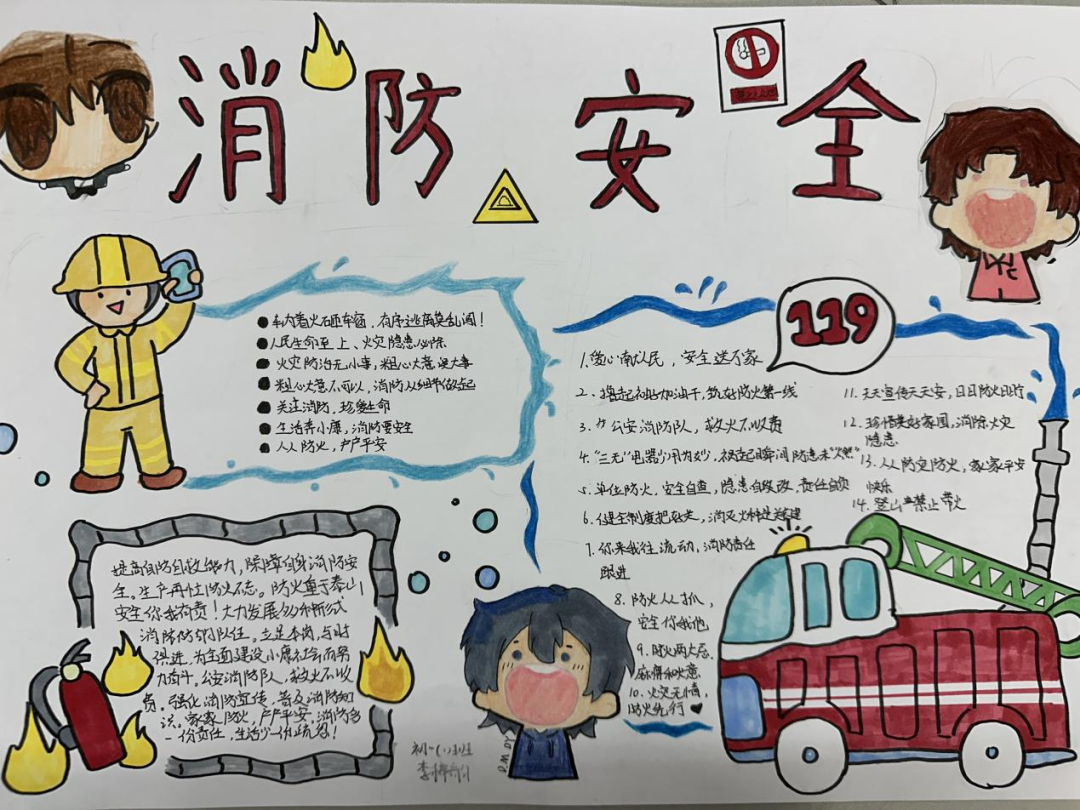 消防安全
119
车内着火砸车窗，有序逃离莫乱闯！
人民生命至上、火灾隐患必除
火灾防治无小事，粗心大意误大事
粗心大意不可以，消防从细节做起
关注消防，珍爱生命
生活奔小康，消防要安全
人人防火，户户平安
1.爱心献人民，安全送万家
2.撸起袖子加油干，筑好防火第一线
3.公安消防队，救火不收费
4.“三无”电器少用为妙，祸起瞬间防患未“燃”
5.单位防火，安全自查，隐患自改，责任自负
6.健全制度把控
7.你来我往流动，消防责任
跟进
8.防火人人抓，
安全你我他
9.防火两大忌，
麻痹和大意
10.火灾无情，
防火先行
11.天天宣传天天安，日日防火日日
12.珍惜美好家园，消除火灾
隐患
13.人人防灾防火，家家平安
快乐
14.登山严禁止带火
提高自防自救能力，保障自身消防安
全。生产再忙防火不忘。防火重于泰山
安全你我有责！大力发展多种形式
消防队伍。立足本岗，与时
俱进，为全面建设小康社会而努
力奋斗。公安消防队，救火不收
费。强化消防宣传，普及消防知
识。家家防火，户户平安，消防多
一份责任，生活少一份疏忽！
初一(1)班